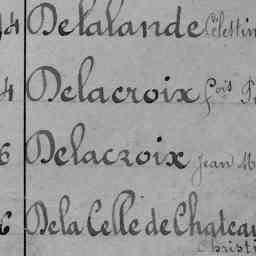 4 Delalande Célestin
4 Delacroix fçois
6 Delacroix Jean M
6 De la Celle de Chateau
Christi